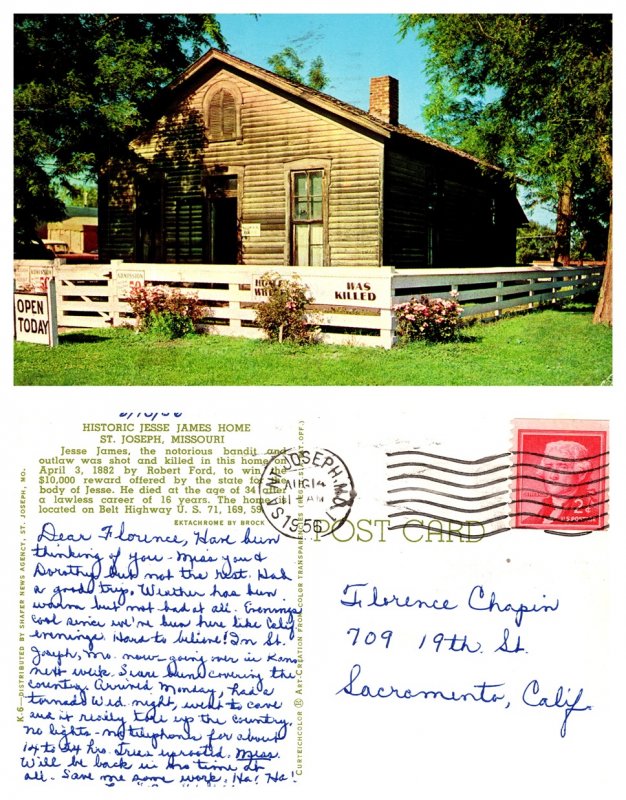 OPEN
TODAY
ADMISSION
HOME
WAS
KILLED
8/13/56
HISTORIC JESSE JAMES HOME
ST. JOSEPH, MISSOURI
Jesse James, the notorious bandit and
outlaw was shot and killed in this home on
April 3, 1882 by Robert Ford, to win the
$10,000 reward offered by the state for the
body of Jesse. He died at the age of 34 after
a lawless career of 16 years. The home is
located on Belt Highway U. S. 71, 169, 59.
EKTACHROME BY BROCK
K-6—DISTRIBUTED BY SHAFER NEWS AGENCY, ST. JOSEPH, MO.
CURTEICHCOLOR ART-CREATION FROM COLOR TRANSPARENCY
POST CARD
SAINT JOSEPH, MO.
AUG 14
AM
1956
2¢
U.S. POSTAGE
Dear Florence, Have bun
thinking of you - Miss you &
Dorothy but not the rest. Had
a good trip. Weather has bun
warm but not bad at all. Evenings
cool since we've bun here like Calif
evenings. Hard to believe! In St.
Joseph, Mo. now - going over in Kans
next week. Sure bun covering the
country. Arrived Monday, had a
tornado Wed. night, went to cave
and it really tore up the country,
no lights - no telephone for about
14 to 24 hrs. Trees uprooted. Miss.
Will be back in no time at
all. Save me some work. Ha! Ha!
Florence Chapin
709 19th. St.
Sacramento, Calif.